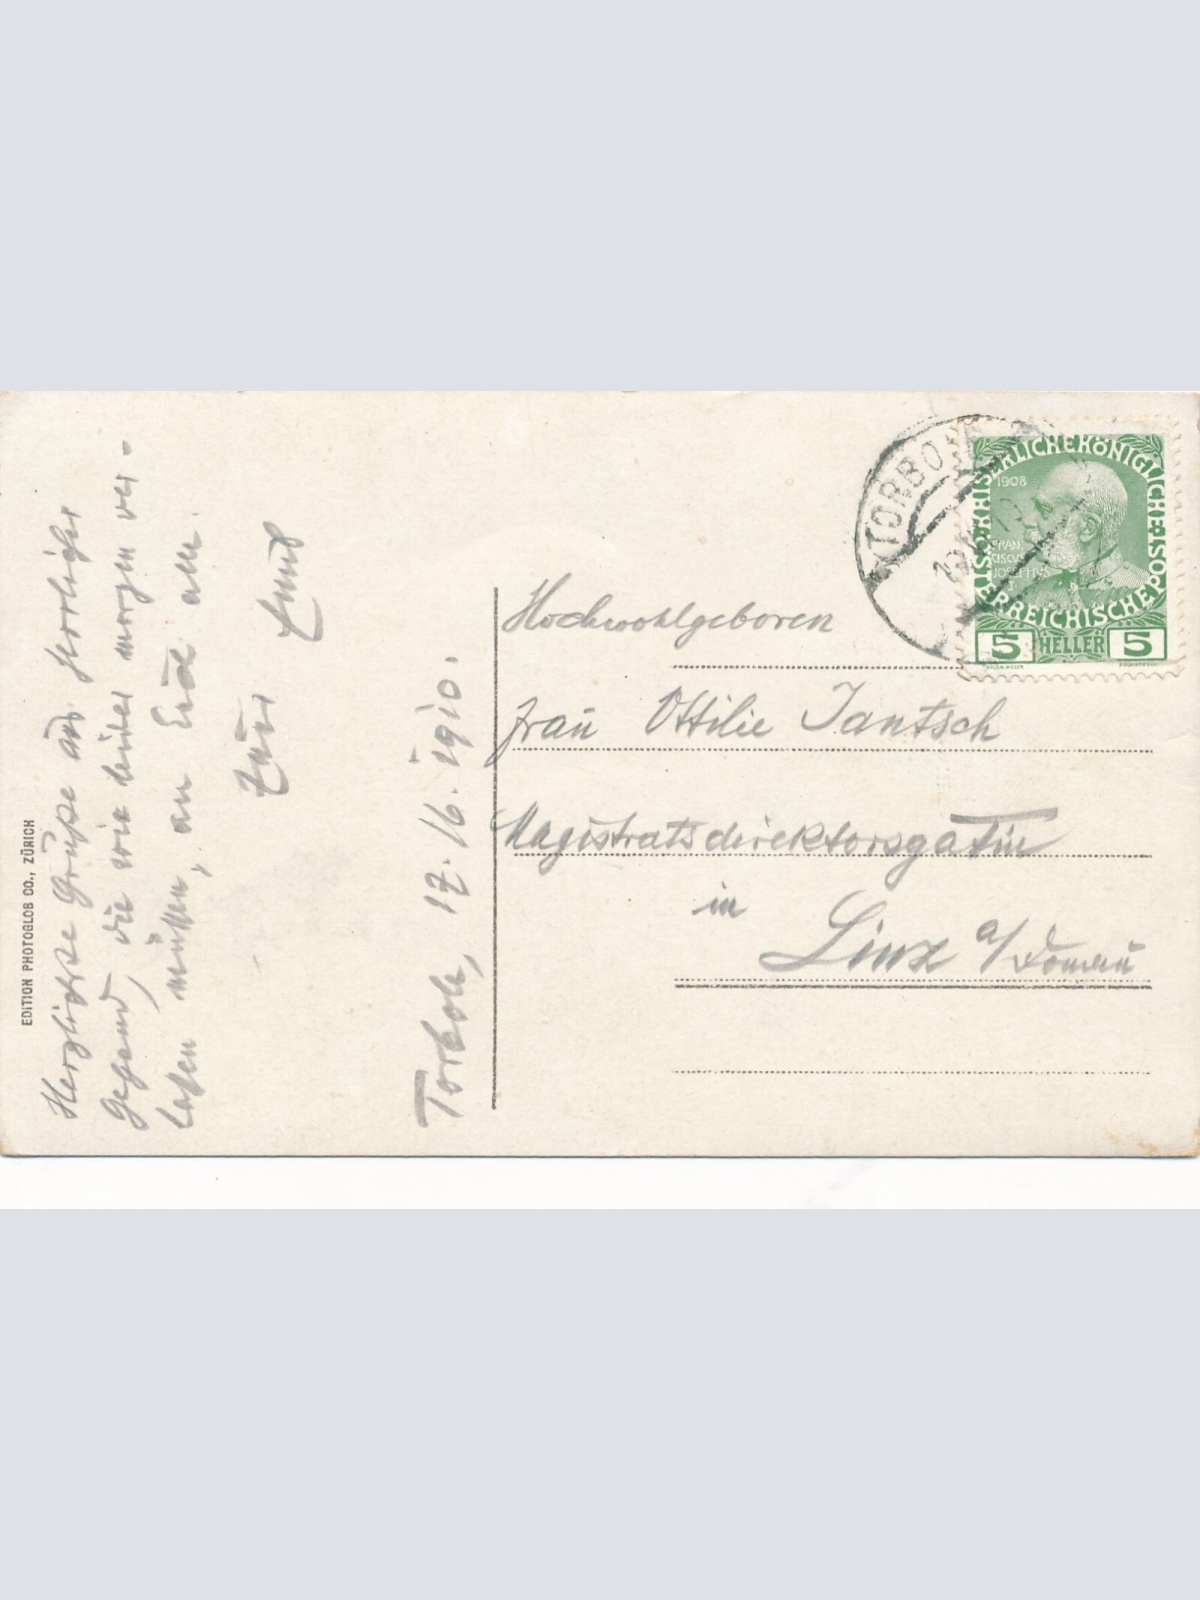 EDITION PHOTOGLOB CO., ZÜRICH
Herzlichste Grüße aus herrlicher
Gegend, die wir leider morgen ver-
lassen müssen, an Euch alle.
Euer
Torbole, 17. 1910.
TORBOLE
KAISERLICHE KÖNIGLICHE
ÖSTERREICHISCHE POST
1908
FRAN
CISCVS
IOSEPHVS
5 HELLER 5
Hochwohlgeboren
Frau Ottilie Jantsch
Magistratsdirektorsgattin
in
Linz a/Donau